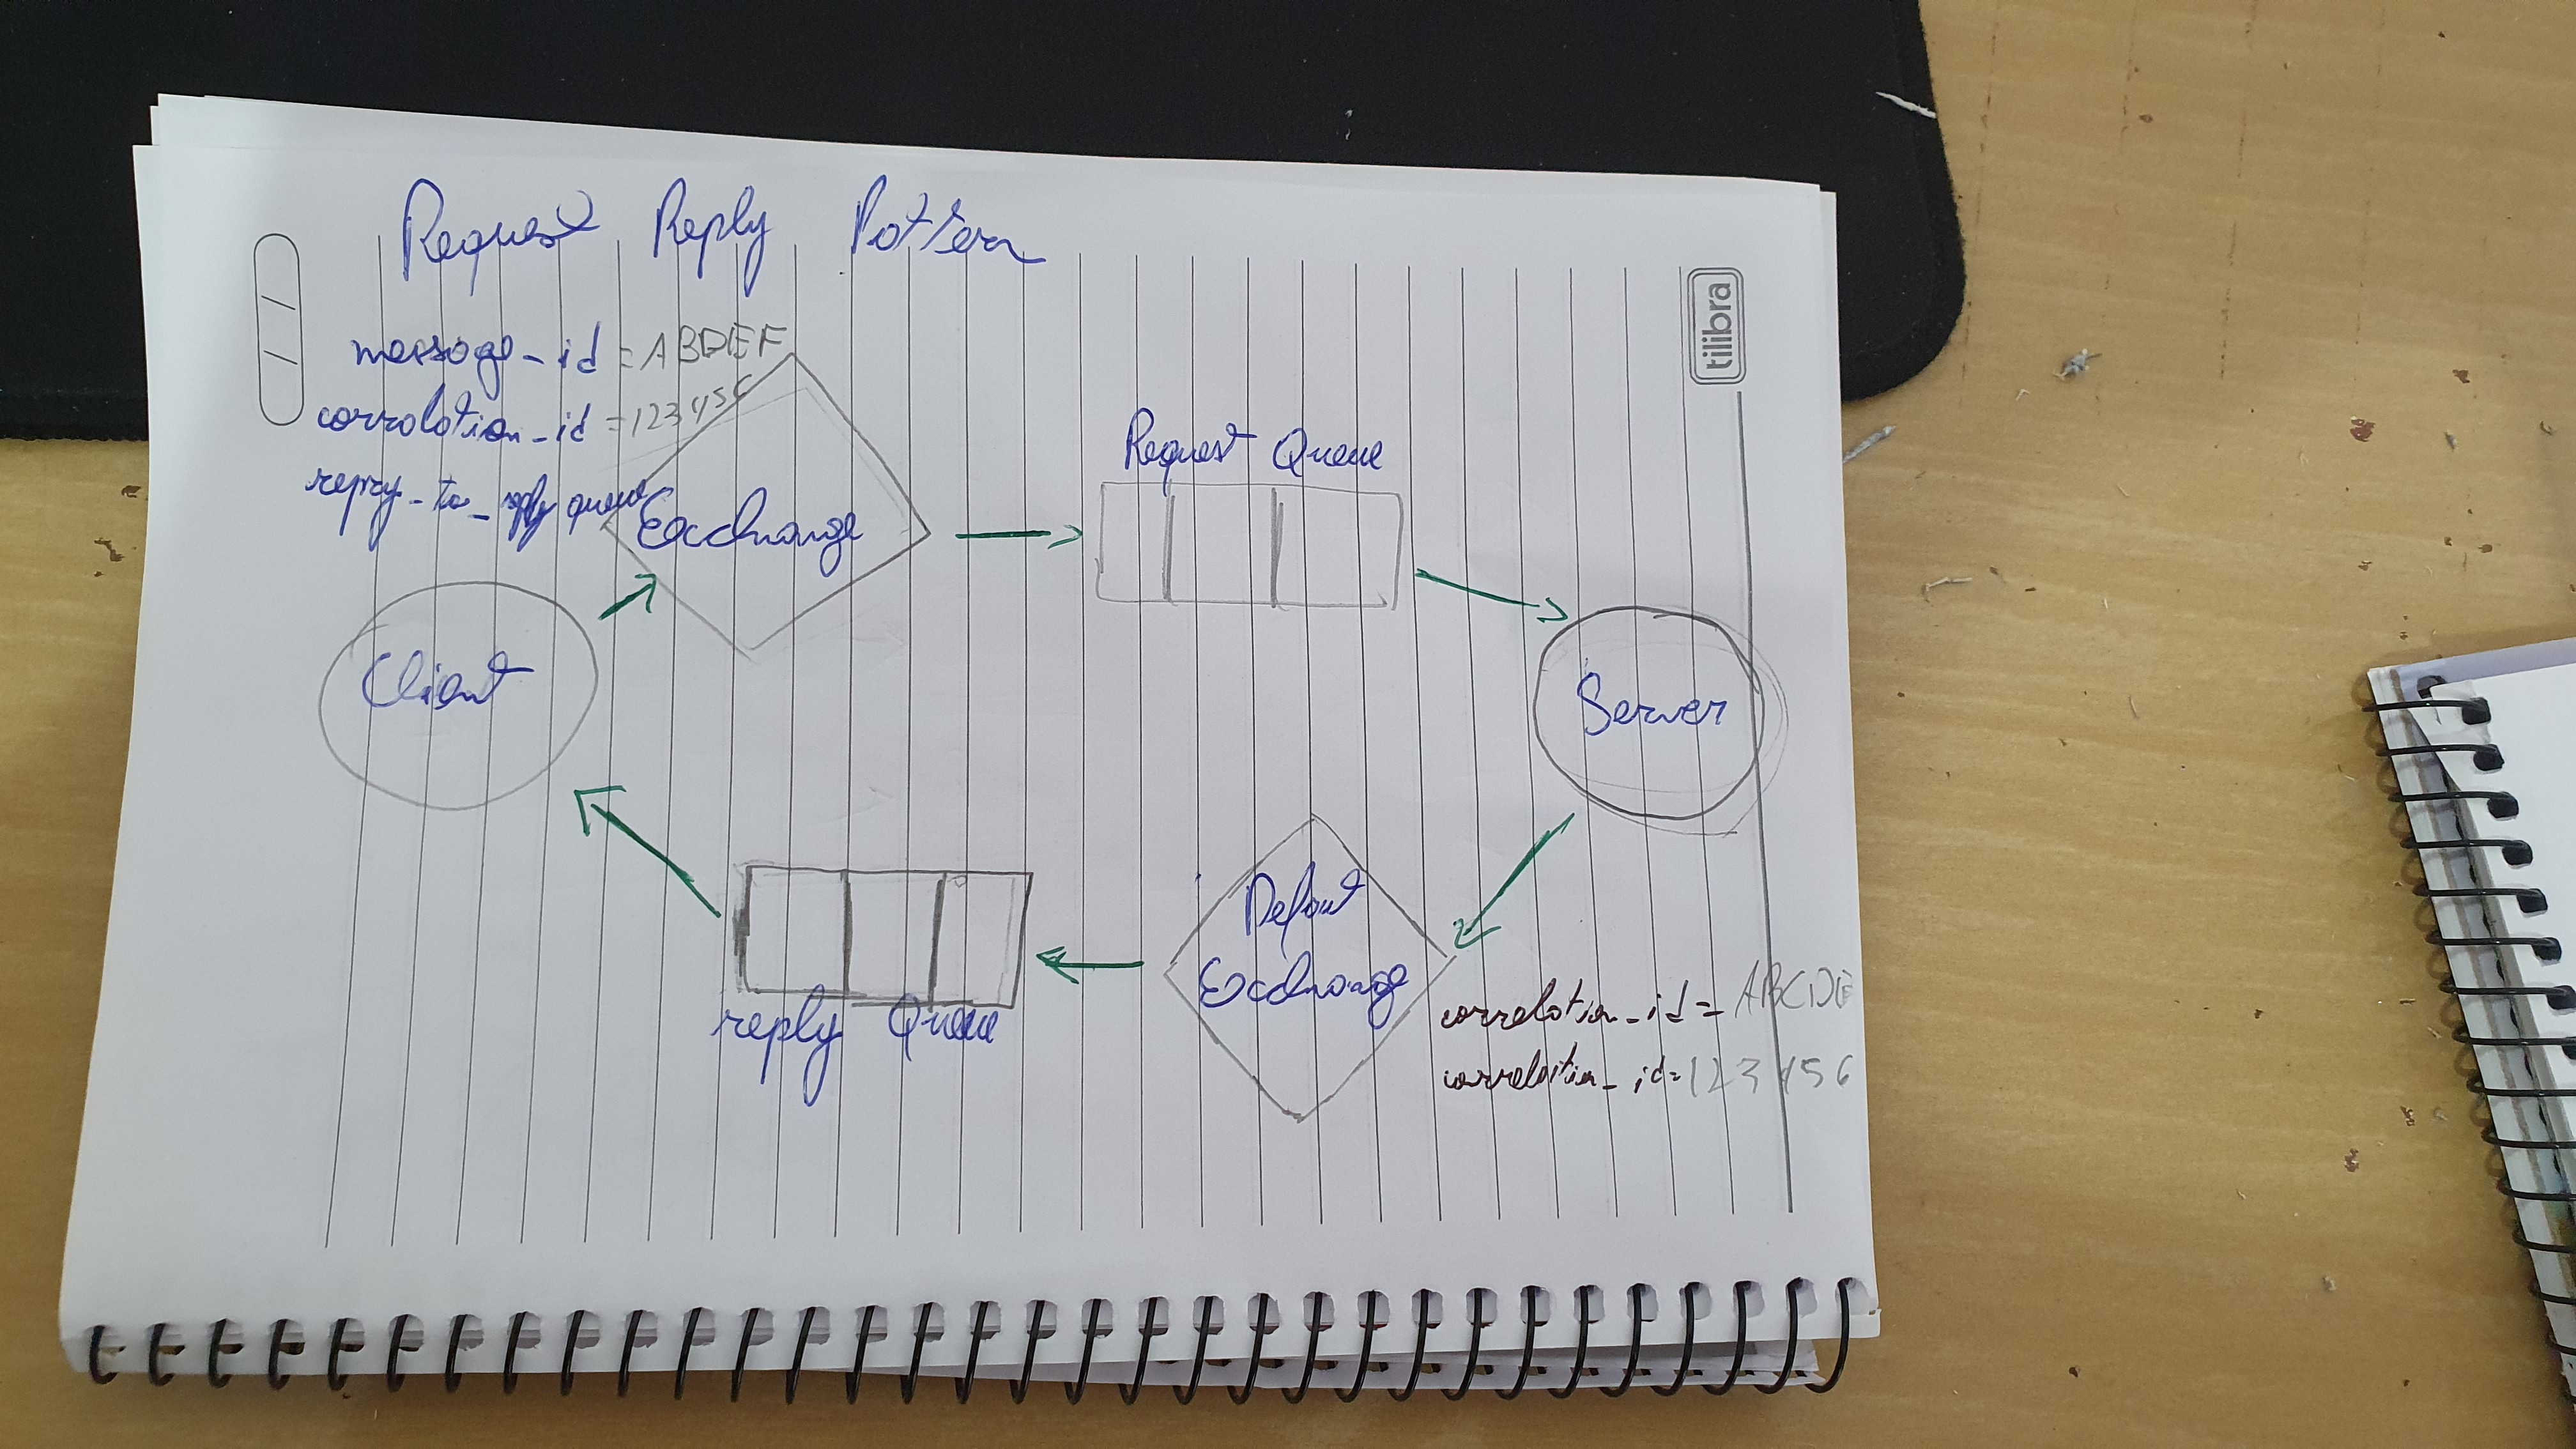 Request Reply Pattern
tilibra
message_id = ABDEF
correlation_id = 123456
reply_to_reply queue
Exchange
Request Queue
Client
Server
Defaut
Exchange
reply Queue
correlation_id = ABCDE
correlation_id = 123456